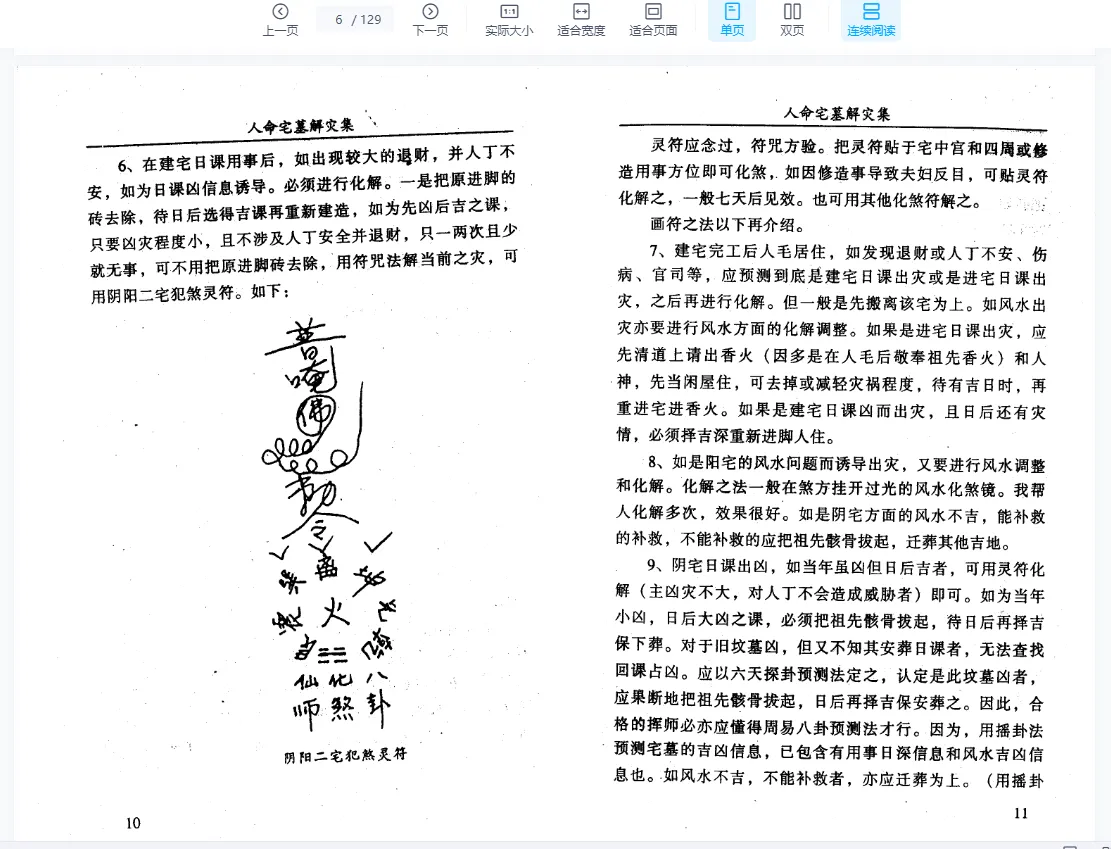 上一页
6 / 129
下一页
1:1
实际大小
适合宽度
适合页面
单页
双页
连续阅读
人命宅墓解灾集
6、在建宅日课用事后，如出现较大的退财，并人丁不
安，如为日课凶信息诱导。必须进行化解。一是把原进脚的
砖去除，待日后选得吉课再重新建造，如为先凶后吉之课，
只要凶灾程度小，且不涉及人丁安全并退财，只一两次且少
就无事，可不用把原进脚砖去除，用符咒法解当前之灾，可
用阴阳二宅犯煞灵符。如下：
唵
佛
勅
令
离
火
仙 化 八
师 煞 卦
阴阳二宅犯煞灵符
10
人命宅墓解灾集
灵符应念过，符咒方验。把灵符贴于宅中宫和四周或修
造用事方位即可化煞，如因修造事导致夫妇反目，可贴灵符
化解之，一般七天后见效。也可用其他化煞符解之。
画符之法以下再介绍。
7、建宅完工后人毛居住，如发现退财或人丁不安、伤
病、官司等，应预测到底是建宅日课出灾或是进宅日课出
灾，之后再进行化解。但一般是先搬离该宅为上。如风水出
灾亦要进行风水方面的化解调整。如果是进宅日课出灾，应
先清道上请出香火（因多是在人毛后敬奉祖先香火）和人
神，先当闲屋住，可去掉或减轻灾祸程度，待有吉日时，再
重进宅进香火。如果是建宅日课凶而出灾，且日后还有灾
情，必须择吉深重新进脚人住。
8、如是阳宅的风水问题而诱导出灾，又要进行风水调整
和化解。化解之法一般在煞方挂开过光的风水化煞镜。我帮
人化解多次，效果很好。如是阴宅方面的风水不吉，能补救
的补救，不能补救的应把祖先骸骨拔起，迁葬其他吉地。
9、阴宅日课出凶，如当年虽凶但日后吉者，可用灵符化
解（主凶灾不大，对人丁不会造成威胁者）即可。如为当年
小凶，日后大凶之课，必须把祖先骸骨拔起，待日后再择吉
保下葬。对于旧坟墓凶，但又不知其安葬日课者，无法查找
回课占凶。应以六天探卦预测法定之，认定是此坟墓凶者，
应果断地把祖先骸骨拔起，日后再择吉保安葬之。因此，合
格的挥师必亦应懂得周易八卦预测法才行。因为，用摇卦法
预测宅墓的吉凶信息，已包含有用事日深信息和风水吉凶信
息也。如风水不吉，不能补救者，亦应迁葬为上。（用摇卦
11